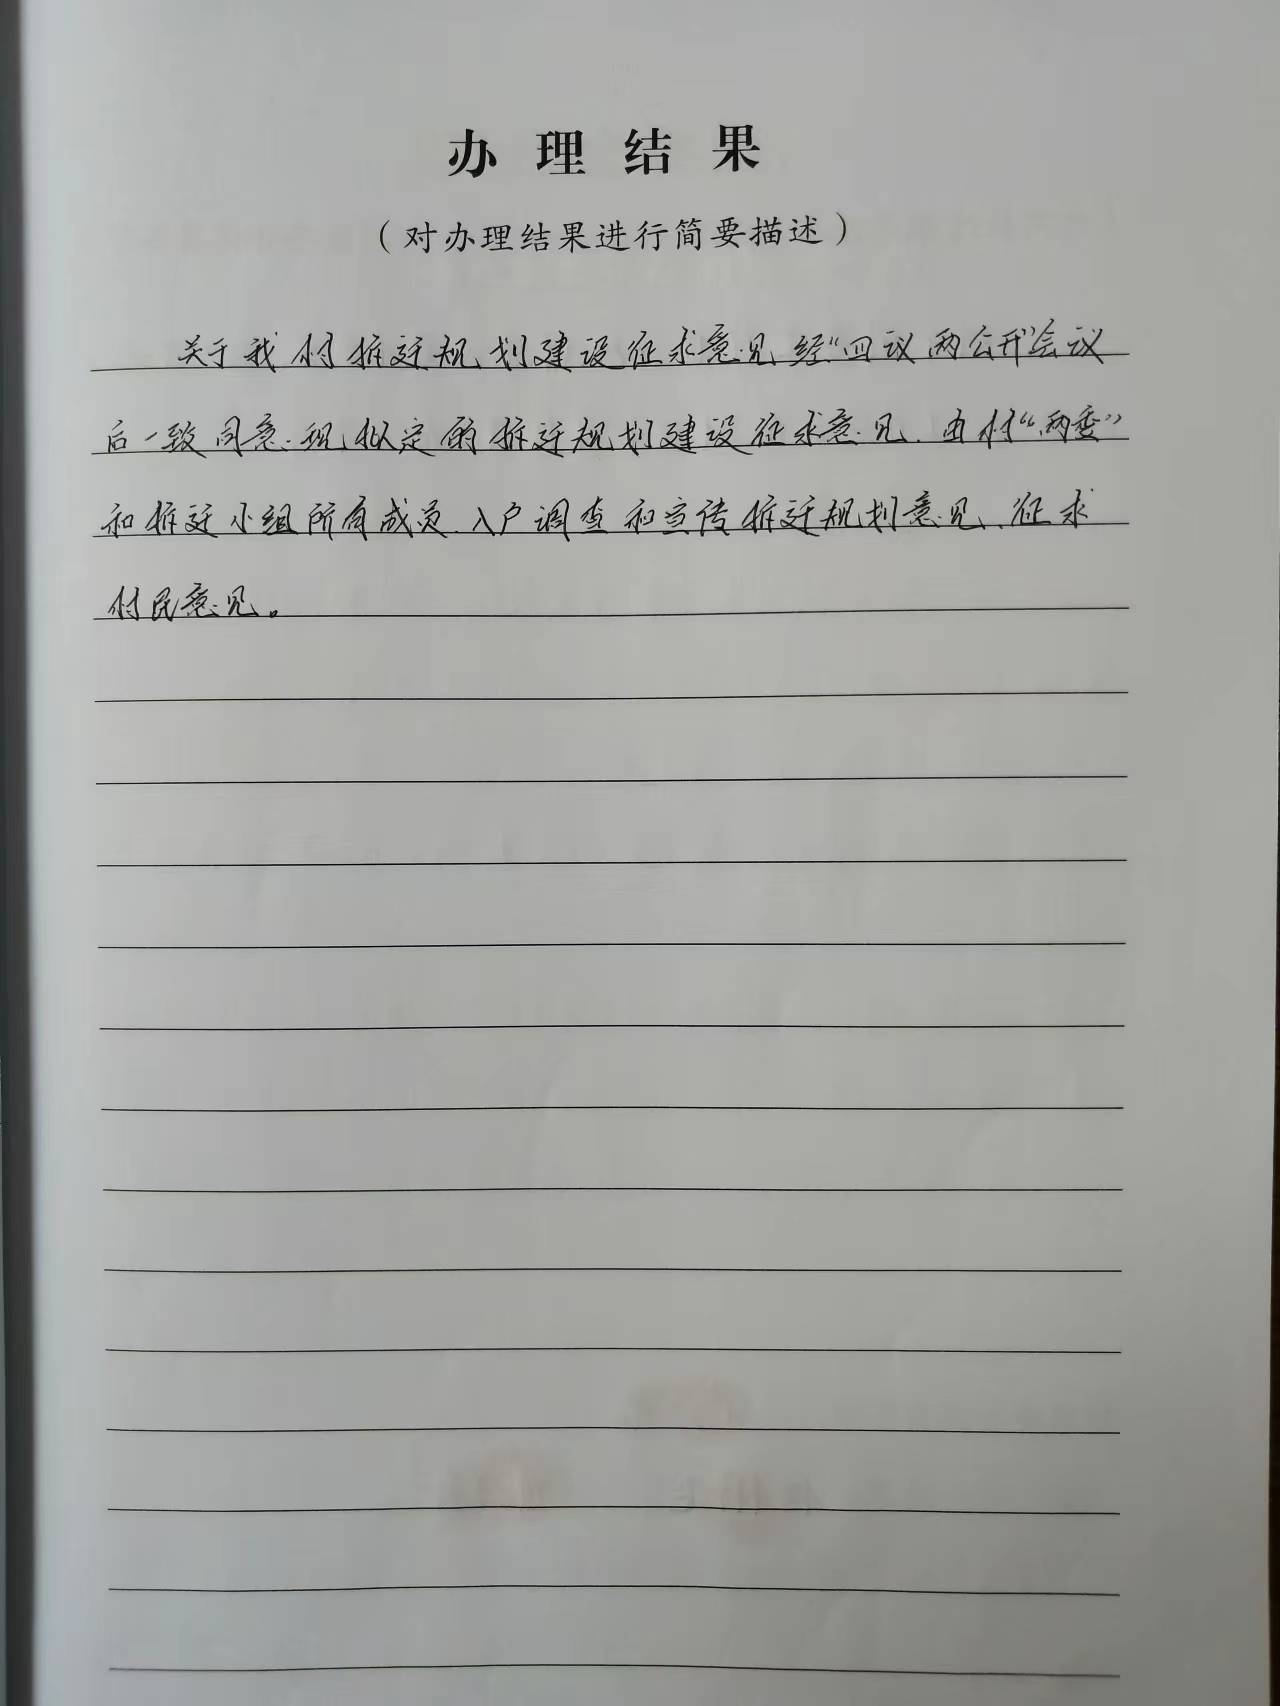 办理结果
（对办理结果进行简要描述）
关于我村拆迁规划建设征求意见经“四议两公开”会议
后一致同意.现拟定的拆迁规划建设征求意见.由村“两委”
和拆迁小组所有成员.入户调查和宣传拆迁规划意见、征求
村民意见。